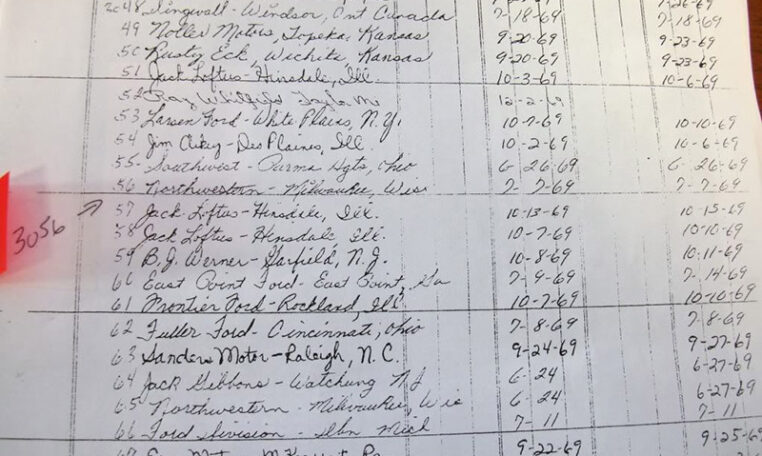 2048 Dingwall - Windsor, Ont Canada 7-18-69 7-18-69
49 Noller Motors, Topeka, Kansas 9-20-69 9-23-69
50 Rusty Eck, Wichita, Kansas 9-20-69 9-23-69
51 Jack Loftus - Hinsdale, Ill. 10-3-69 10-6-69
52 Ray Whitfield Taylor M 12-2-69
53 Larsen Ford - White Plains, N.Y. 10-7-69 10-10-69
54 Jim Aikey - Des Plaines, Ill 10-2-69 10-6-69
55 Southwest - Parma Hgts, Ohio 6-26-69 6-26-69
56 Northwestern - Milwaukee, Wis 7-7-69 7-7-69
3056 → 57 Jack Loftus - Hinsdale, Ill. 10-13-69 10-15-69
58 Jack Loftus - Hinsdale, Ill. 10-7-69 10-10-69
59 B.J. Werner - Garfield, N.J. 10-8-69 10-11-69
60 East Point Ford - East Point, Ga 7-9-69 7-14-69
61 Frontier Ford - Rockland, Ill. 10-7-69 10-10-69
62 Fuller Ford - Cincinnati, Ohio 7-8-69 7-8-69
63 Sanders Motor - Raleigh, N.C. 9-24-69 9-27-69
64 Jack Gibbons - Watchung NJ 6-24 6-27-69
65 Northwestern - Milwaukee, Wis 6-24 6-27-69
66 Ford Division - Dbn Mich 7-11 7-11
67 9-22-69 9-25-69